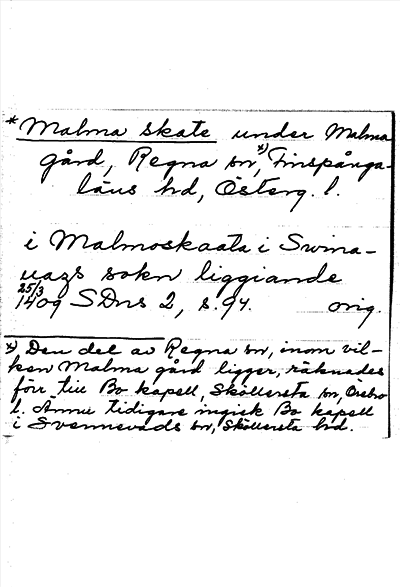 *Malma skate under Malma
gård, Regna sn,*) Finspånga-
läns hd, Österg. l.
i Malmoskaata i Swina-
uazs sokn liggiande
25/3
1409 SDns 2, s. 94. orig.
*) Den del av Regna sn, inom vil-
ken Malma gård ligger, räknades
förr till Bo kapell, Sköllersta sn, Örebro
l. Ännu tidigare ingick Bo kapell
i Svennevads sn, Sköllersta hd.